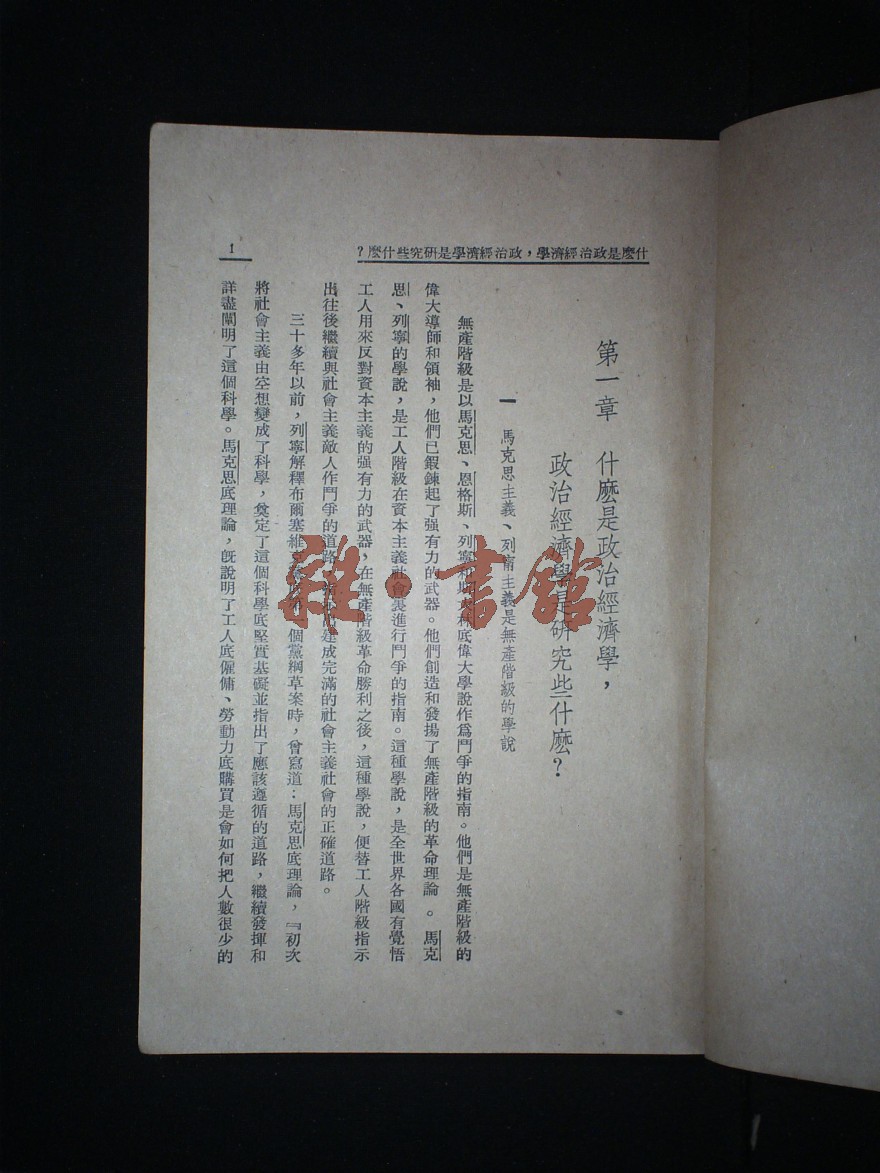 什麼是政治經濟學，政治經濟學是研究些什麼？
1
第一章　什麼是政治經濟學，
政治經濟學是研究些什麼？
一　馬克思主義、列甯主義是無產階級的學說
無產階級是以馬克思、恩格斯、列寧和斯大林底偉大學說作爲鬥爭的指南。他們是無產階級的
偉大導師和領袖，他們已鍜鍊起了强有力的武器。他們創造和發揚了無產階級的革命理論。馬克
思、列寧的學說，是工人階級在資本主義社會裏進行鬥爭的指南。這種學說，是全世界各國有覺悟
工人用來反對資本主義的强有力的武器，在無產階級革命勝利之後，這種學說，便替工人階級指示
出往後繼續與社會主義敵人作鬥爭的道路，建成完滿的社會主義社會的正確道路。
三十多年以前，列寧解釋布爾塞維第一個黨綱草案時，曾寫道：馬克思底理論，『初次
將社會主義由空想變成了科學，奠定了這個科學底堅實基礎並指出了應該遵循的道路，繼續發揮和
詳盡闡明了這個科學。馬克思底理論，旣說明了工人底僱傭、勞動力底購買是會如何把人數很少的
雜·書館